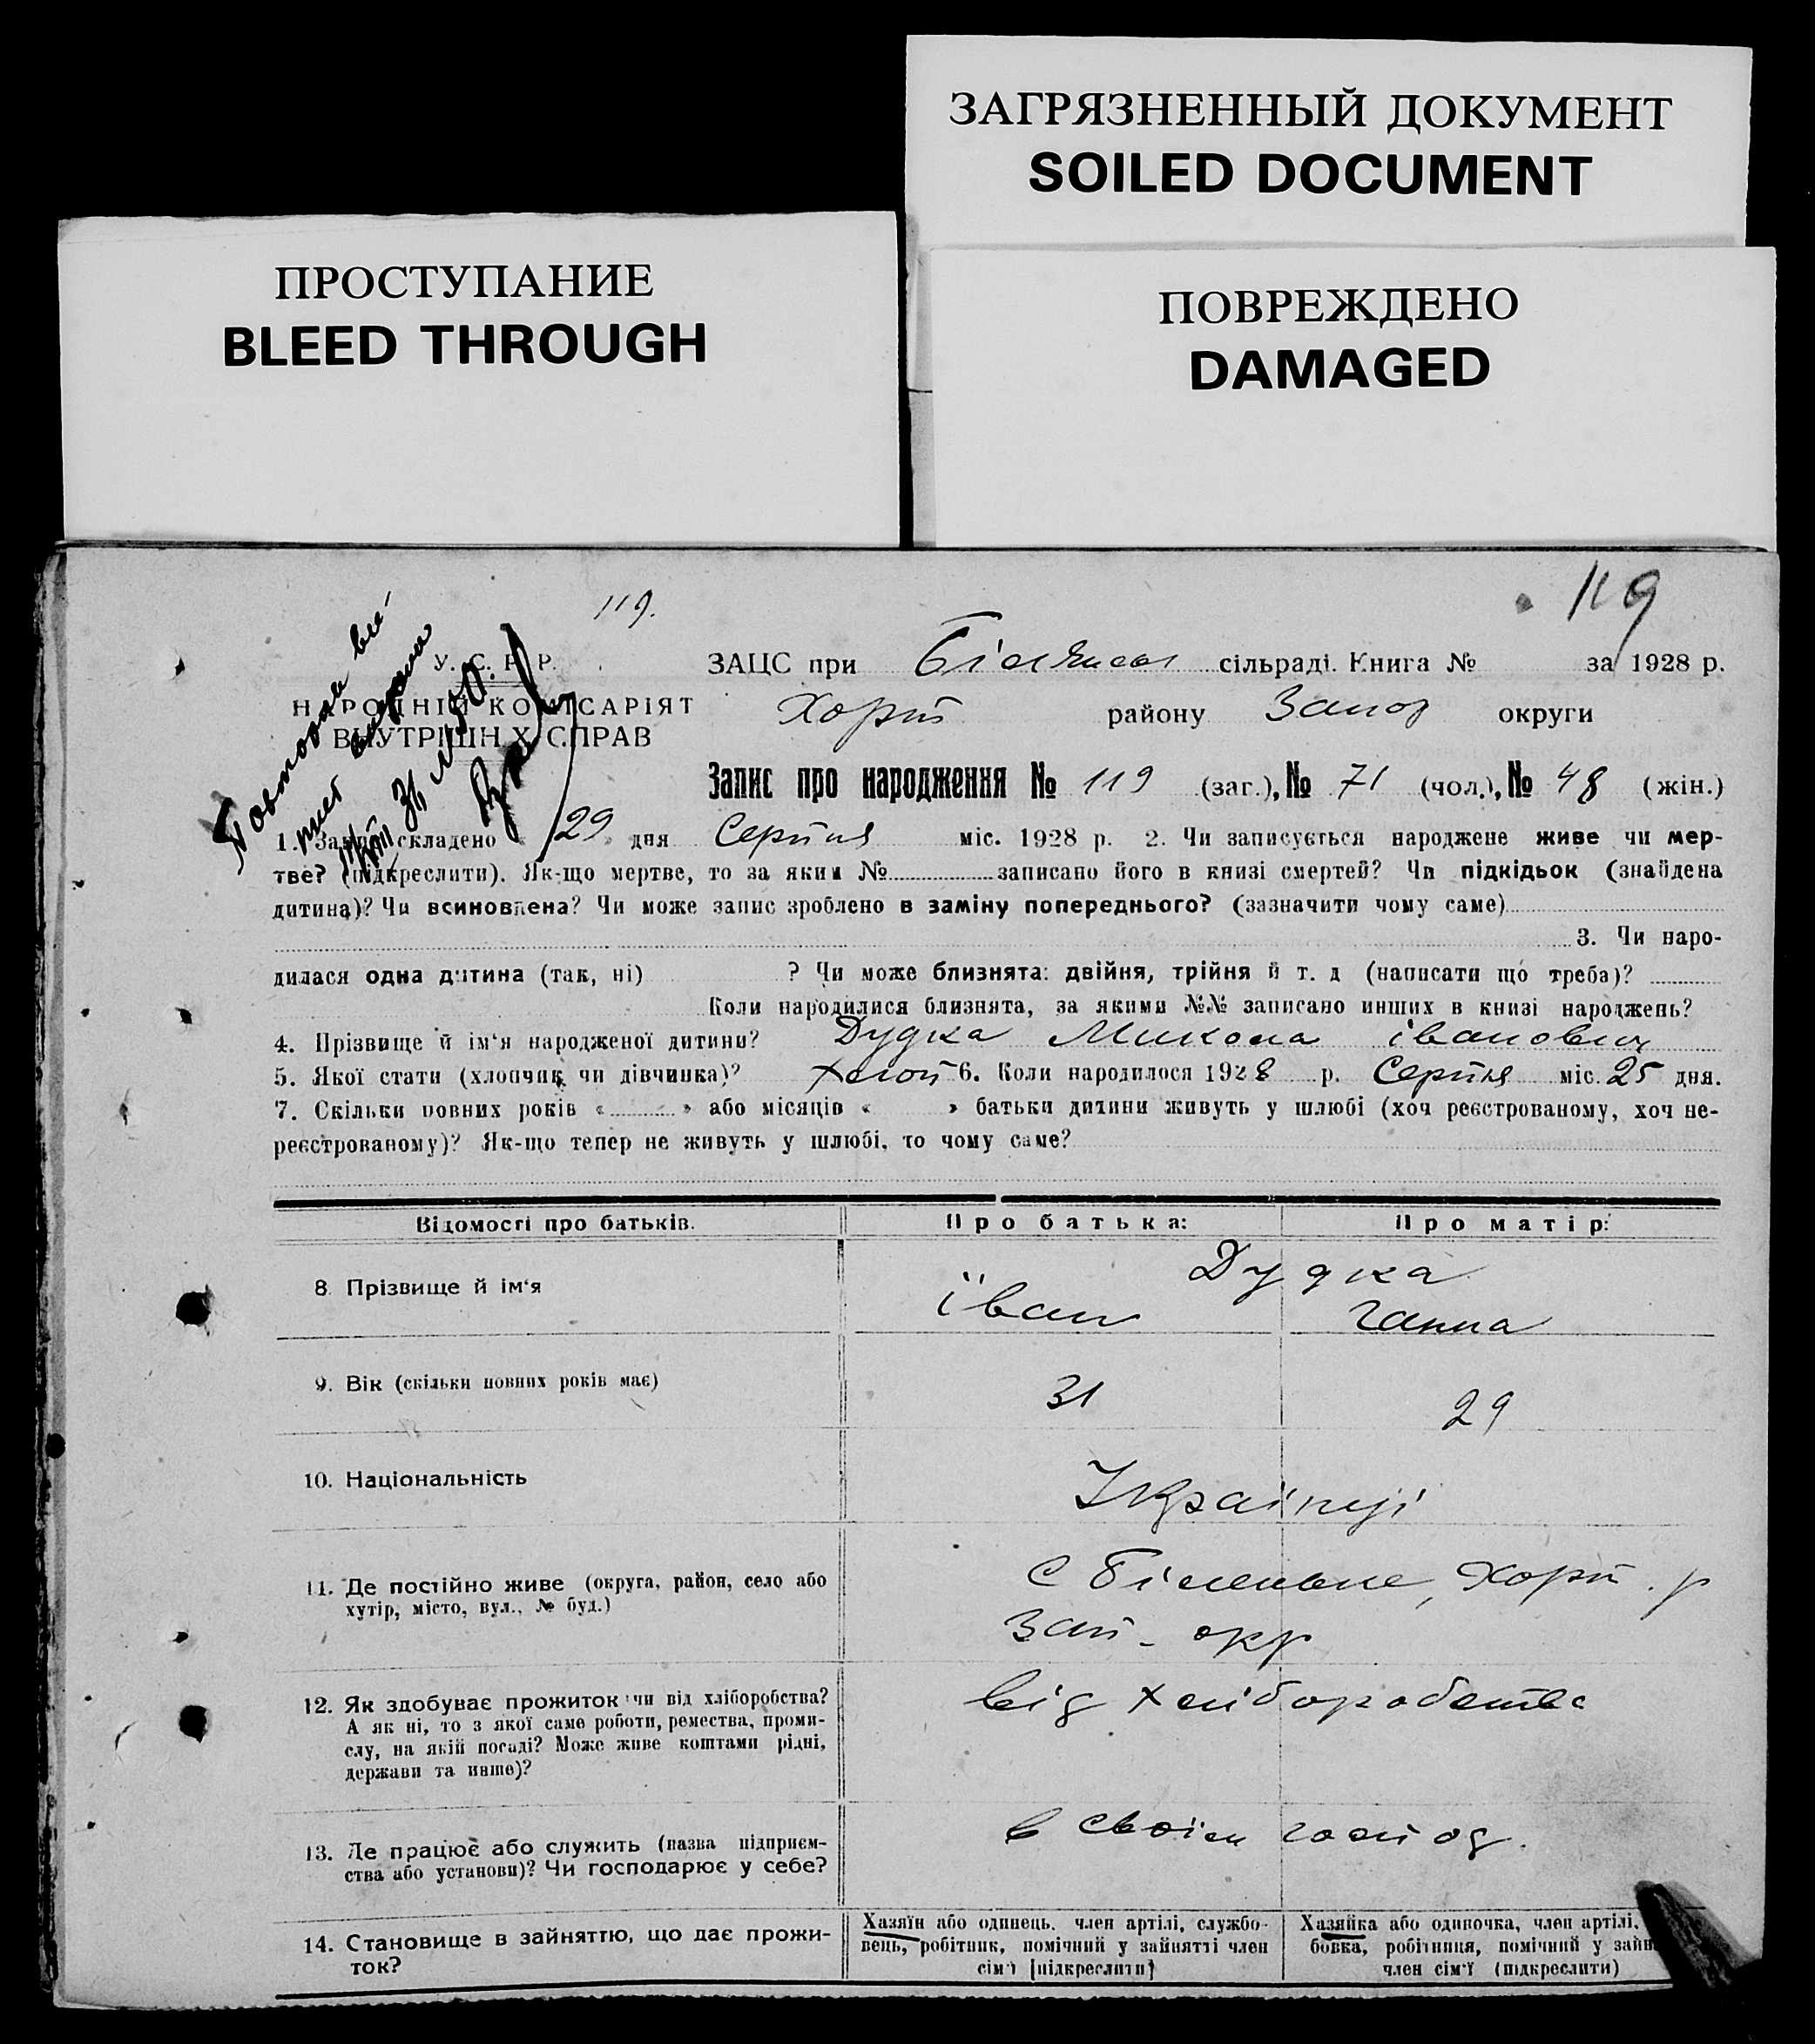 ЗАГРЯЗНЕННЫЙ ДОКУМЕНТ
SOILED DOCUMENT
ПРОСТУПАНИЕ
BLEED THROUGH
ПОВРЕЖДЕНО
DAMAGED
119
119.
У. С. Р. Р.
НАРОДНІЙ КОМІСАРІЯТ
ВНУТРІШНІХ СПРАВ
ЗАЦС при сільраді. Книга № за 1928 р.
Хорт району Запор округи
Запис про народження № 119 (заг.), № 71 (чол.), № 48 (жін.)
1. Запис складено « 29 » дня Серпня міс. 1928 р. 2. Чи записується народжене живе чи мер-
тве? (підкреслити). Як-що мертве, то за яким № записано його в книзі смертей? Чи підкідьок (знайдена
дитина)? Чи всиновлена? Чи може запис зроблено в заміну попереднього? (зазначити чому саме)
3. Чи наро-
дилася одна дитина (так, ні) ? Чи може близнята: двійня, трійня й т. д (написати що треба)?
Коли народилися близнята, за якими №№ записано инших в книзі народжень?
4. Прізвище й ім'я народженої дитини? Дудка Микола Іванович
5. Якої стати (хлопчик чи дівчинка)? Хлоп 6. Коли народилося 1928 р. Серпня міс. 25 дня.
7. Скільки повних років « » або місяців « » батьки дитини живуть у шлюбі (хоч реєстрованому, хоч не-
реєстрованому)? Як-що тепер не живуть у шлюбі, то чому саме?
Відомості про батьків. Про батька: Про матір:
Дудка
8. Прізвище й ім'я Їван Ганна
9. Вік (скільки повних років має) 31 29
10. Національність Українці
11. Де постійно живе (округа, район, село або
хутір, місто, вул., № буд.)
с Біленьке, Хорт. р
Зап- окр
12. Як здобуває прожиток чи від хліборобства? від хліборобства
А як ні, то з якої саме роботи, ремества, проми-
слу, на якій посаді? Може живе коштами рідні,
держави та инше)?
13. Де працює або служить (назва підприєм-
ства або установи)? Чи господарює у себе?
в своїм господ.
14. Становище в зайняттю, що дає прожи-
ток?
Хазяїн або одинець, член артілі, службо-
вець, робітник, помічний у зайнятті член
сім'ї [підкреслити]
Хазяйка або одиночка, член артілі,
бовка, робітниця, помічний у
член сім'ї (підкреслити)